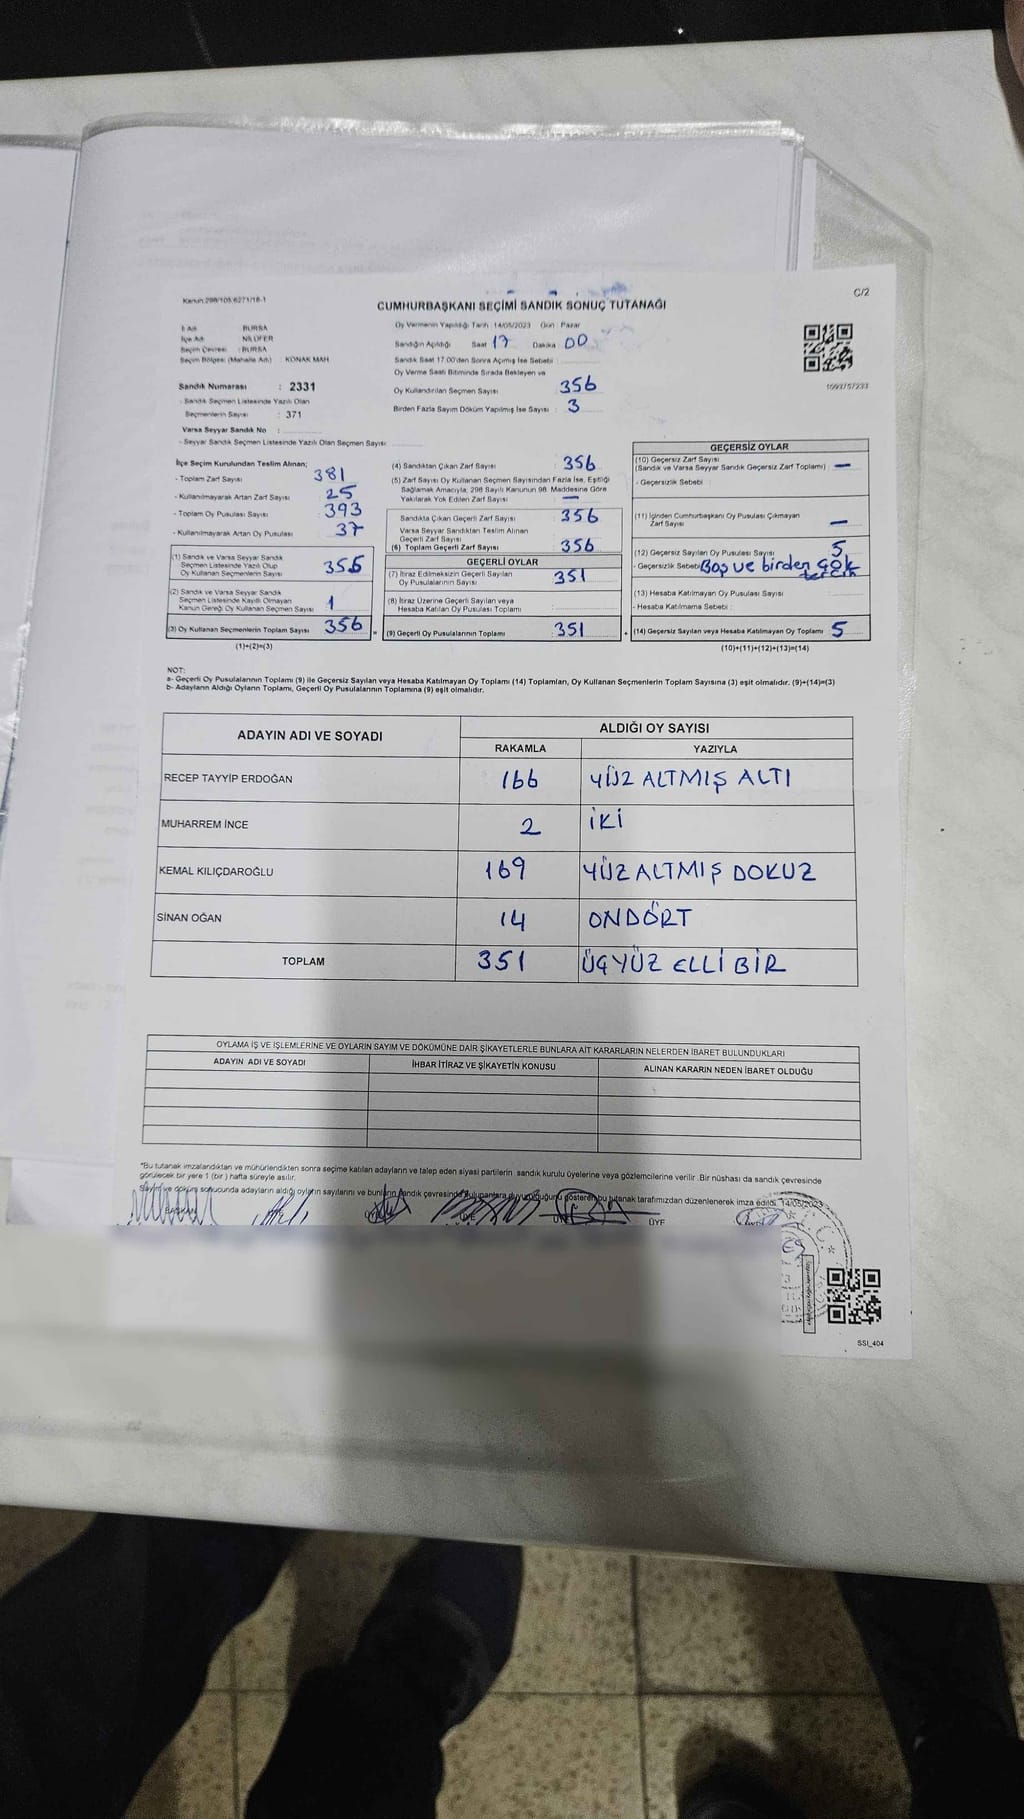 Kanun:298/105,6271/18-1
C/2
CUMHURBAŞKANI SEÇİMİ SANDIK SONUÇ TUTANAĞI
İl Adı : BURSA
İlçe Adı : NİLÜFER
Seçim Çevresi : BURSA
Seçim Bölgesi (Mahalle Adı) : KONAK MAH
Sandık Numarası : 2331
- Sandık Seçmen Listesinde Yazılı Olan
Seçmenlerin Sayısı : 371
Varsa Seyyar Sandık No :
- Seyyar Sandık Seçmen Listesinde Yazılı Olan Seçmen Sayısı
Oy Vermenin Yapıldığı Tarih : 14/05/2023 Gün : Pazar
Sandığın Açıldığı Saat 17 Dakika : 00
Sandık Saat 17:00'den Sonra Açımış İse Sebebi :
Oy Verme Saati Bitiminde Sırada Bekleyen ve
Oy Kullandırılan Seçmen Sayısı : 356
Birden Fazla Sayım Döküm Yapılmış İse Sayısı : 3
1093757233
İlçe Seçim Kurulundan Teslim Alınan;
- Toplam Zarf Sayısı 381
- Kullanılmayarak Artan Zarf Sayısı 25
- Toplam Oy Pusulası Sayısı 393
- Kullanılmayarak Artan Oy Pusulası 37
(1) Sandık ve Varsa Seyyar Sandık
Seçmen Listesinde Yazılı Olup
Oy Kullanan Seçmenlerin Sayısı 355
(2) Sandık ve Varsa Seyyar Sandık
Seçmen Listesinde Kayıtlı Olmayan
Kanun Gereği Oy Kullanan Seçmen Sayısı 1
(3) Oy Kullanan Seçmenlerin Toplam Sayısı 356
(1)+(2)=(3)
(4) Sandıktan Çıkan Zarf Sayısı : 356
(5) Zarf Sayısı Oy Kullanan Seçmen Sayısından Fazla İse, Eşitliği
Sağlamak Amacıyla, 298 Sayılı Kanunun 98. Maddesine Göre
Yakılarak Yok Edilen Zarf Sayısı : —
Sandıkta Çıkan Geçerli Zarf Sayısı : 356
Varsa Seyyar Sandıktan Teslim Alınan
Geçerli Zarf Sayısı :
(6) Toplam Geçerli Zarf Sayısı : 356
GEÇERLİ OYLAR
(7) İtiraz Edilmeksizin Geçerli Sayılan
Oy Pusulalarının Sayısı : 351
(8) İtiraz Üzerine Geçerli Sayılan veya
Hesaba Katılan Oy Pusulası Toplamı :
= (9) Geçerli Oy Pusulalarının Toplamı : 351
GEÇERSİZ OYLAR
(10) Geçersiz Zarf Sayısı
(Sandık ve Varsa Seyyar Sandık Geçersiz Zarf Toplamı) : —
- Geçersizlik Sebebi :
(11) İçinden Cumhurbaşkanı Oy Pusulası Çıkmayan
Zarf Sayısı : —
(12) Geçersiz Sayılan Oy Pusulası Sayısı : 5
- Geçersizlik Sebebi : Boş ve birden çok
tercih
(13) Hesaba Katılmayan Oy Pusulası Sayısı :
- Hesaba Katılmama Sebebi :
+ (14) Geçersiz Sayılan veya Hesaba Katılmayan Oy Toplamı : 5
(10)+(11)+(12)+(13)=(14)
NOT:
a- Geçerli Oy Pusulalarının Toplamı (9) ile Geçersiz Sayılan veya Hesaba Katılmayan Oy Toplamı (14) Toplamları, Oy Kullanan Seçmenlerin Toplam Sayısına (3) eşit olmalıdır. (9)+(14)=(3)
b- Adayların Aldığı Oyların Toplamı, Geçerli Oy Pusulalarının Toplamına (9) eşit olmalıdır.
ADAYIN ADI VE SOYADI
ALDIĞI OY SAYISI
RAKAMLA YAZIYLA
RECEP TAYYİP ERDOĞAN 166 YÜZ ALTMIŞ ALTI
MUHARREM İNCE 2 İKİ
KEMAL KILIÇDAROĞLU 169 YÜZ ALTMIŞ DOKUZ
SİNAN OĞAN 14 ONDÖRT
TOPLAM 351 ÜÇYÜZ ELLİ BİR
OYLAMA İŞ VE İŞLEMLERİNE VE OYLARIN SAYIM VE DÖKÜMÜNE DAİR ŞİKAYETLERLE BUNLARA AİT KARARLARIN NELERDEN İBARET BULUNDUKLARI
ADAYIN ADI VE SOYADI İHBAR İTİRAZ VE ŞİKAYETİN KONUSU ALINAN KARARIN NEDEN İBARET OLDUĞU
*Bu tutanak imzalandıktan ve mühürlendikten sonra seçime katılan adayların ve talep eden siyasi partilerin sandık kurulu üyelerine veya gözlemcilerine verilir .Bir nüshası da sandık çevresinde
görülecek bir yere 1 (bir ) hafta süreyle asılır.
Sayım ve döküm sonucunda adayların aldığı oyların sayılarını ve bunların sandık çevresinde bulunanlara duyurulduğunu gösteren bu tutanak tarafımızdan düzenlenerek imza edildi. 14/05/2023
BAŞKAN ÜYE ÜYE ÜYE ÜYE
T.C.
SSI_404